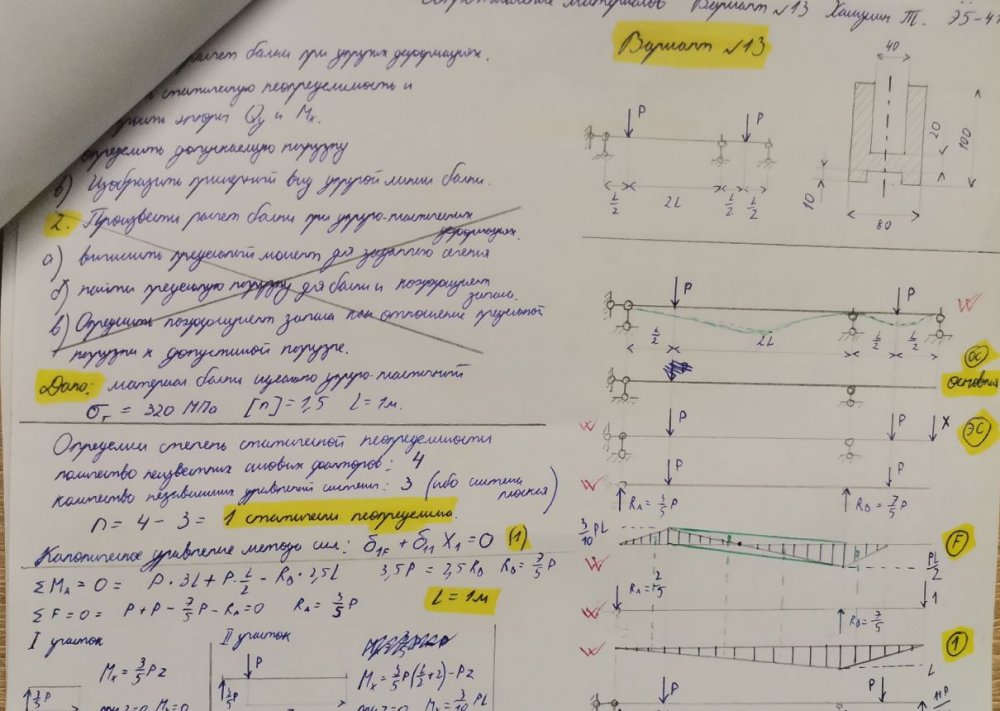 Сопротивление материалов Вариант №13 Хамушин Т. Э5-4
расчет балки при упругих деформациях.
статическую неопределимость и
эпюры Qy и Mx.
определить допускаемую нагрузку
в) Изобразить примерный вид упругой линии балки.
2. Произвести расчет балки при упруго-пластических
деформациях.
а) вычислить предельный момент для заданного сечения
б) найти предельную нагрузку для балки и коэффициент
запаса.
в) Определить коэффициент запаса как отношение предельной
нагрузки к допустимой нагрузке.
Дано: материал балки идеально упруго-пластичный
σт = 320 МПа [n]=1,5 L=1м.
Определим степень статической неопределимости
количество неизвестных силовых факторов: 4
количество независимых уравнений системы: 3 (ибо система
плоская)
n = 4 - 3 = 1 статически неопределима.
Каноническое уравнение метода сил: δ1F + δ11 X1 = 0 (1)
ΣMA = 0 = P · 3L + P · L/2 - RB · 2,5L 3,5P = 2,5RB RB = 7/5 P
ΣF = 0 = P + P - 7/5 P - RA = 0 RA = 3/5 P L = 1м
I участок
Mx = 3/5 Pz
3/5 P
II участок
P
Mx = 3/5 P(L/2 + z) - Pz
Mx = 3/10 PL
Вариант №13
40
P P
20
100
10
80
L/2 2L L/2 L/2
P P
L/2 2L L/2 L/2
ОС
основная
P P X
ЭС
P P
RA = 3/5 P RB = 7/5 P
3/10 PL
F
PL/2
RA = 2/5 1
RB = 7/5
1
L
P P 11P